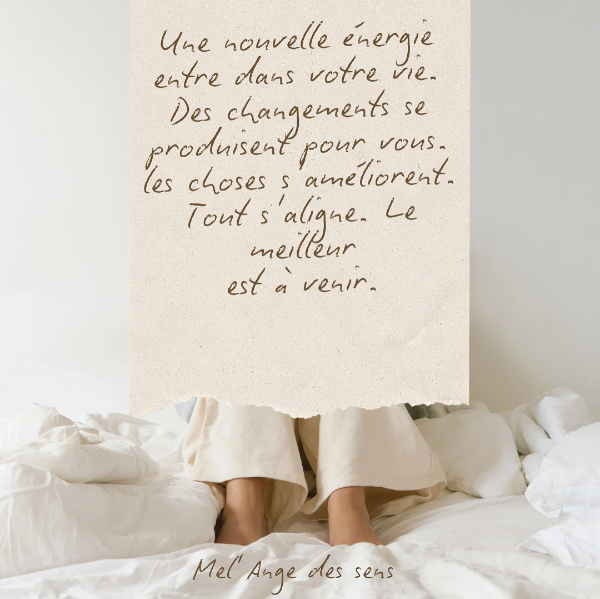 Une nouvelle énergie
entre dans votre vie.
Des changements se
produisent pour vous.
les choses s améliorent.
Tout s'aligne. Le
meilleur
est à venir.
Mel'Ange des sens